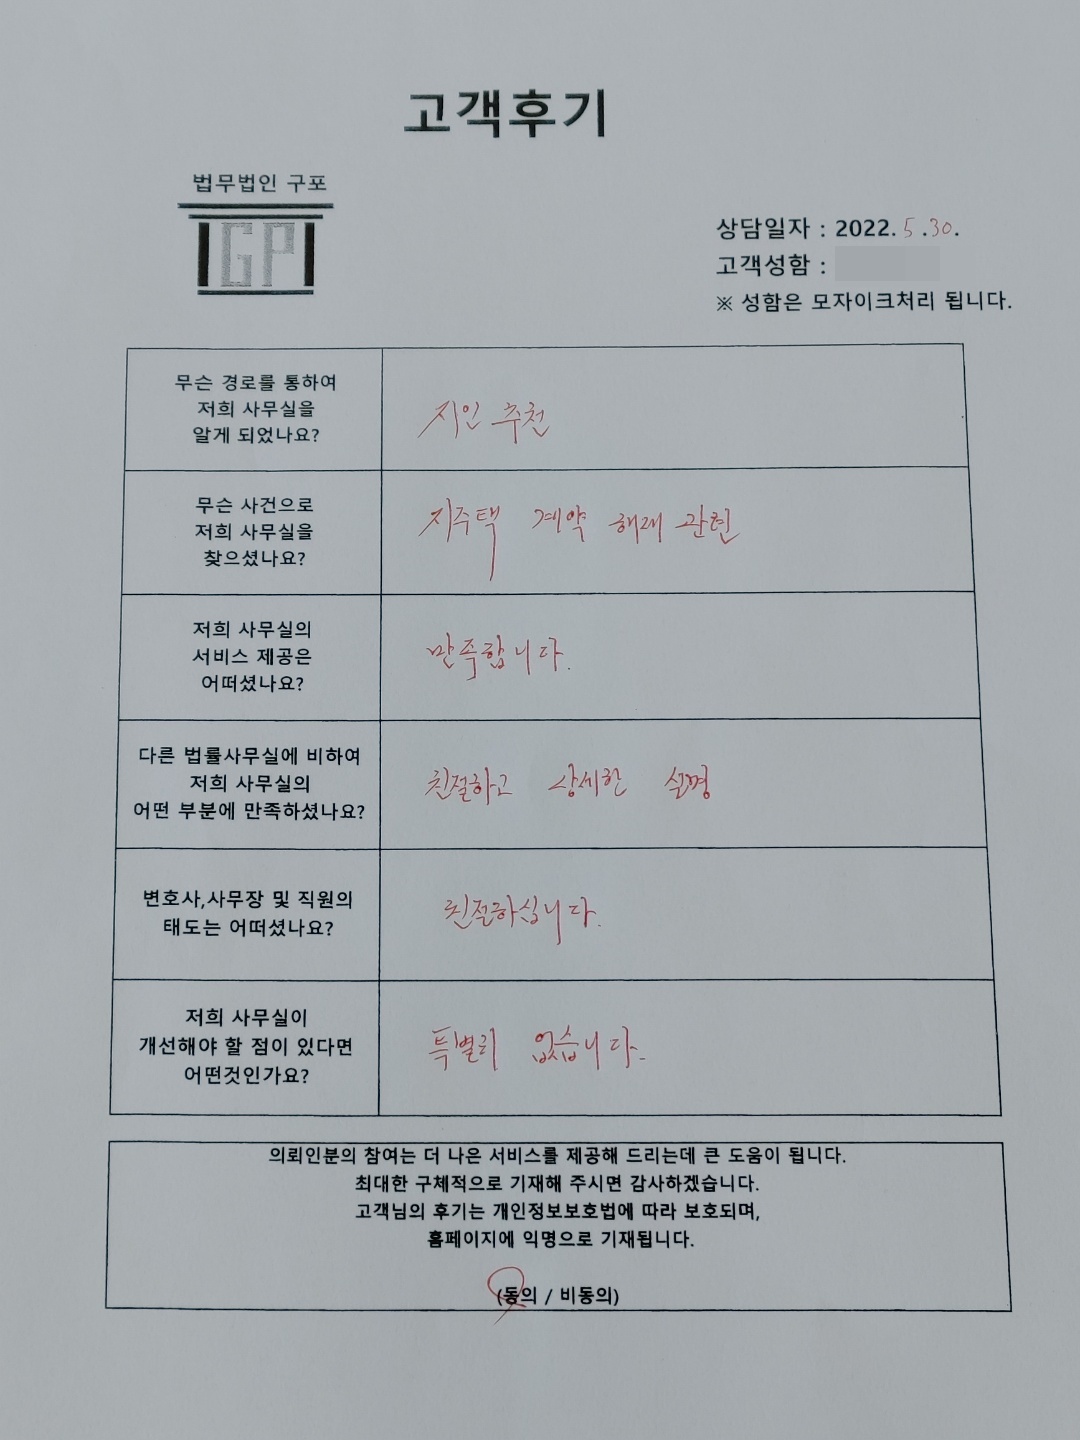 고객후기
법무법인 구포
GP
상담일자 : 2022. 5 .30.
고객성함 :
※ 성함은 모자이크처리 됩니다.
무슨 경로를 통하여
저희 사무실을
알게 되었나요?
지인 추천
무슨 사건으로
저희 사무실을
찾으셨나요?
지주택 계약 해제 관련
저희 사무실의
서비스 제공은
어떠셨나요?
만족합니다.
다른 법률사무실에 비하여
저희 사무실의
어떤 부분에 만족하셨나요?
친절하고 상세한 설명
변호사,사무장 및 직원의
태도는 어떠셨나요?
친절하십니다.
저희 사무실이
개선해야 할 점이 있다면
어떤것인가요?
특별히 없습니다.
의뢰인분의 참여는 더 나은 서비스를 제공해 드리는데 큰 도움이 됩니다.
최대한 구체적으로 기재해 주시면 감사하겠습니다.
고객님의 후기는 개인정보보호법에 따라 보호되며,
홈페이지에 익명으로 기재됩니다.
(동의 / 비동의)